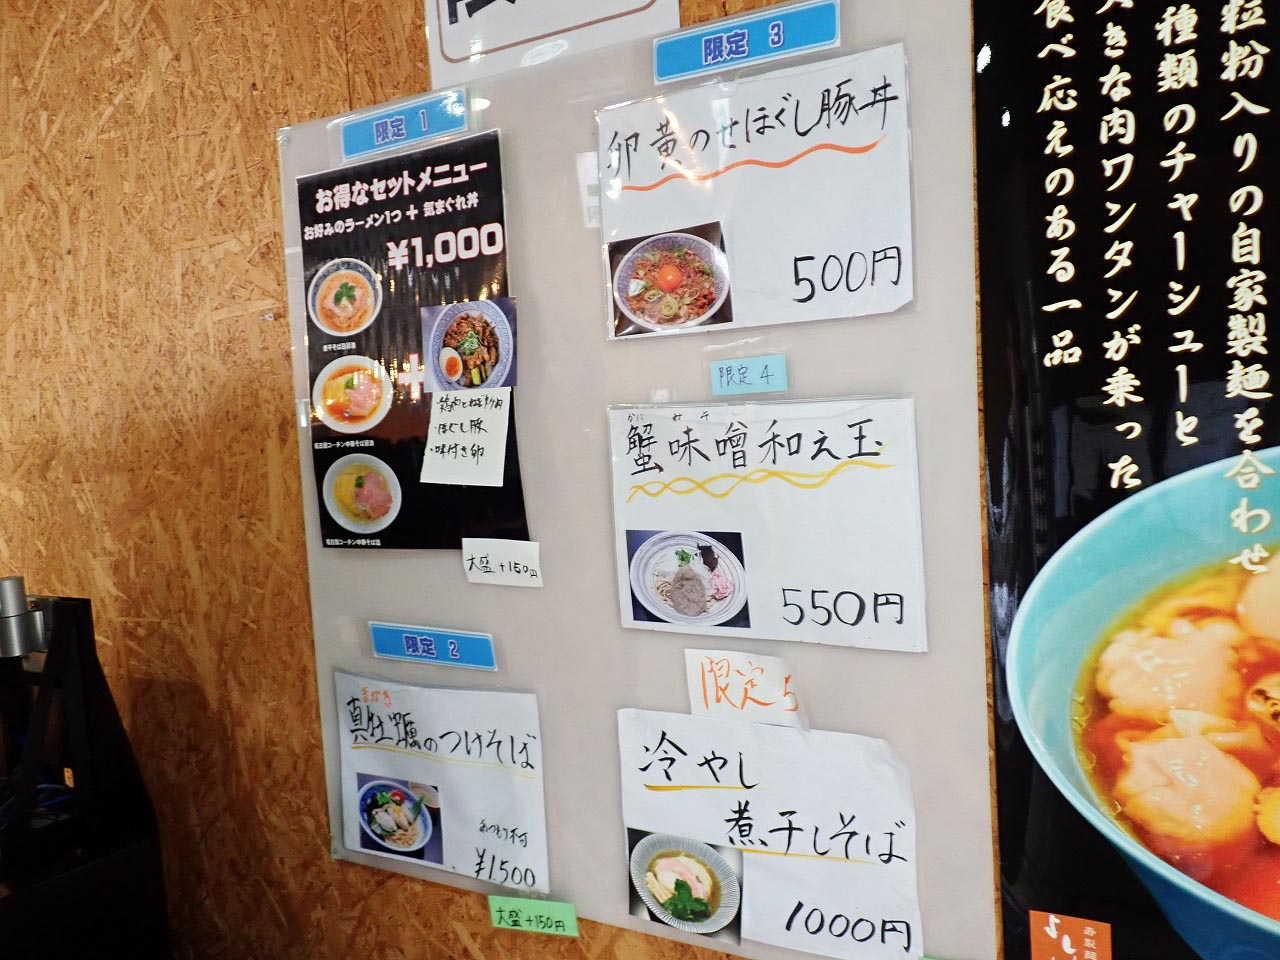 限定 1
お得なセットメニュー
お好みのラーメン1つ + 気まぐれ丼
¥1,000
煮干そば醤油
+
名古屋コーチン中華そば醤油
名古屋コーチン中華そば塩
・ほぐし豚
・味付き卵
大盛+150円
限定 2
まがき
真牡蠣のつけそば
あつもり不可
¥1,500
大盛+150円
限定 3
卵黄のせほぐし豚丼
500円
限定4
かに みそ
蟹味噌和え玉
550円
限定5
冷やし
煮干しそば
1000円
粒粉入りの自家製麺を合わせ
種類のチャーシューと
きな肉ワンタンが乗った
食べ応えのある一品